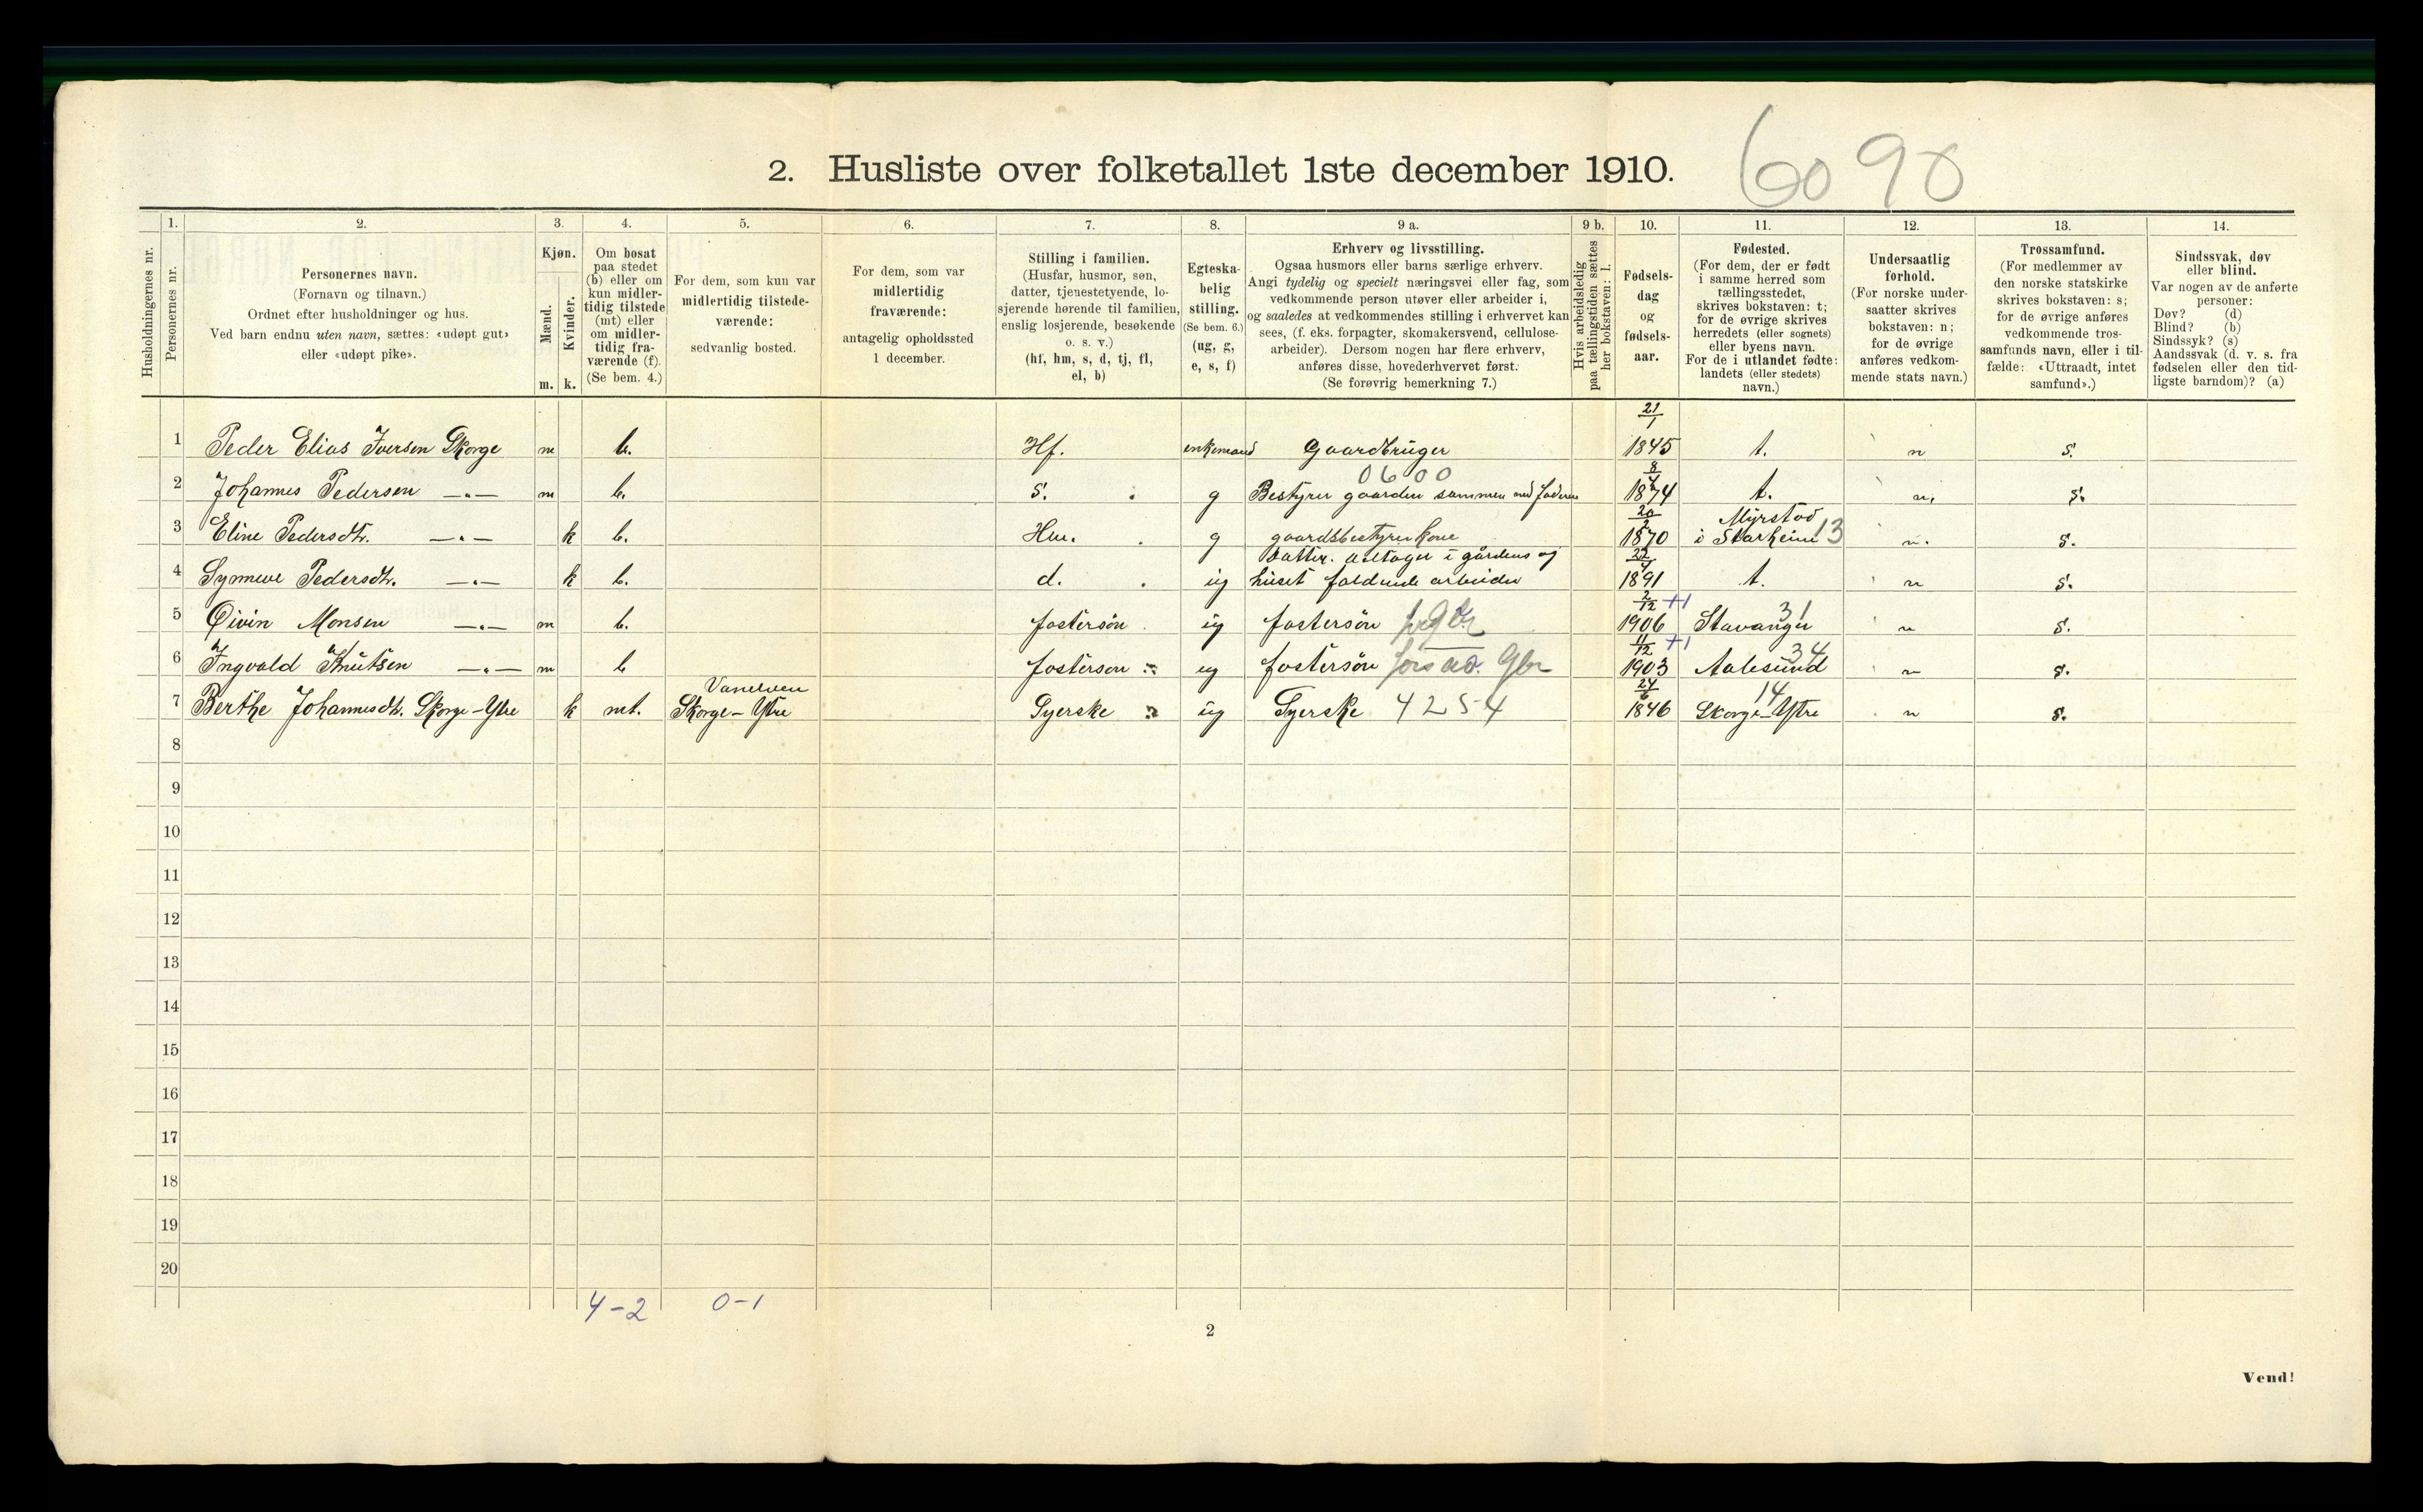 2. Husliste over folketallet 1ste december 1910. 6090
1. 2. 3. 4. 5. 6. 7. 8. 9 a. 9 b. 10. 11. 12. 13. 14.
Husholdningernes nr.
Personernes nr.
Personernes navn.
(Fornavn og tilnavn.)
Ordnet efter husholdninger og hus.
Ved barn endnu uten navn, sættes: «udøpt gut»
eller «udøpt pike».
Kjøn.
Mænd.
Kvinder.
m. k.
Om bosat
paa stedet
(b) eller om
kun midler-
tidig tilstede
(mt) eller
om midler-
tidig fra-
værende (f).
(Se bem. 4.)
For dem, som kun var
midlertidig tilstede-
værende:
sedvanlig bosted.
For dem, som var
midlertidig
fraværende:
antagelig opholdssted
1 december.
Stilling i familien.
(Husfar, husmor, søn,
datter, tjenestetyende, lo-
sjerende hørende til familien,
enslig losjerende, besøkende
o. s. v.)
(hf, hm, s, d, tj, fl,
el, b)
Egteska-
belig
stilling.
(Se bem. 6.)
(ug, g,
e, s, f)
Erhverv og livsstilling.
Ogsaa husmors eller barns særlige erhverv.
Angi tydelig og specielt næringsvei eller fag, som
vedkommende person utøver eller arbeider i,
og saaledes at vedkommendes stilling i erhvervet kan
sees, (f. eks. forpagter, skomakersvend, cellulose-
arbeider). Dersom nogen har flere erhverv,
anføres disse, hovederhvervet først.
(Se forøvrig bemerkning 7.)
Hvis arbeidsledig
paa tællingstiden sættes
her bokstaven: l.
Fødsels-
dag
og
fødsels-
aar.
Fødested.
(For dem, der er født
i samme herred som
tællingsstedet,
skrives bokstaven: t;
for de øvrige skrives
herredets (eller sognets)
eller byens navn.
For de i utlandet fødte:
landets (eller stedets)
navn.)
Undersaatlig
forhold.
(For norske under-
saatter skrives
bokstaven: n;
for de øvrige
anføres vedkom-
mende stats navn.)
Trossamfund.
(For medlemmer av
den norske statskirke
skrives bokstaven: s;
for de øvrige anføres
vedkommende tros-
samfunds navn, eller i til-
fælde: «Uttraadt, intet
samfund».)
Sindssvak, døv
eller blind.
Var nogen av de anførte
personer:
Døv? (d)
Blind? (b)
Sindssyk? (s)
Aandssvak (d. v. s. fra
fødselen eller den tid-
ligste barndom)? (a)
21/1
1 Peder Elias Iversen Skorge m b. Hf. enkemand Gaardbruger 1845 t. n s.
0600 8/7
2 Johannes Pedersen —"— m b. s. g Bestyrer gaarden sammen med faderen 1874 t. n. s.
20/2 Myrstad
3 Eline Pedersdtr. —"— k b. Hm. g gaardsbestyrer kone 1870 i Starheim 13 n. s.
Datter. deltager i gårdens og 22/4
4 Synneve Pedersdtr. —"— k b. d. ug huset faldende arbeider 1891 t. n s.
2/12 +1 31
5 Øivin Monsen —"— m b. fostersön ug fostersön 1906 Stavanger n s.
11/12 +1 34
6 Ingvald Knutsen —"— m b fosterson ug fostersön forsørd. Gbr 1903 Aalesund n s.
Vanelven 24/6 14
7 Berthe Johannesdtr. Skorge-Ytre k mt. Skorge-Ytre Syerske ug Syerske 4254 1846 Skorge-Ytre n s.
8
9
10
11
12
13
14
15
16
17
18
19
20
4-2 0-1
2
Vend!